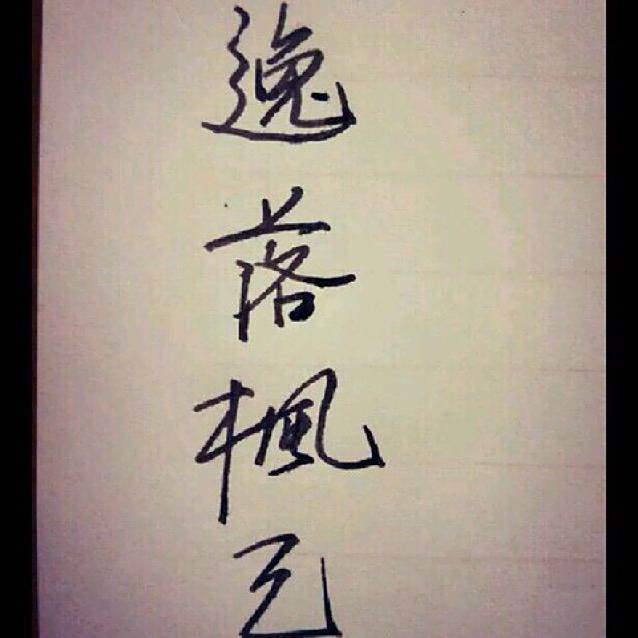 逸落楓